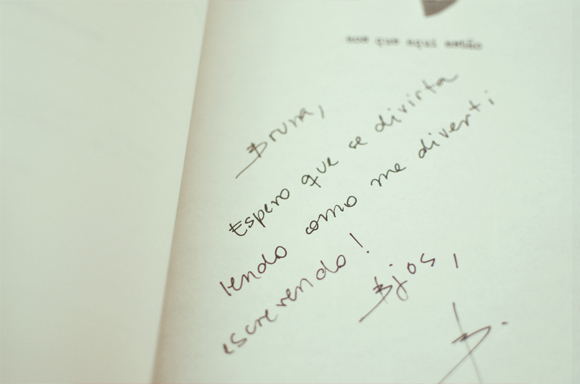 que aqui estão
Bruna,
Espero que se divirta
lendo como me diverti
escrevendo!
Bjos,
B.